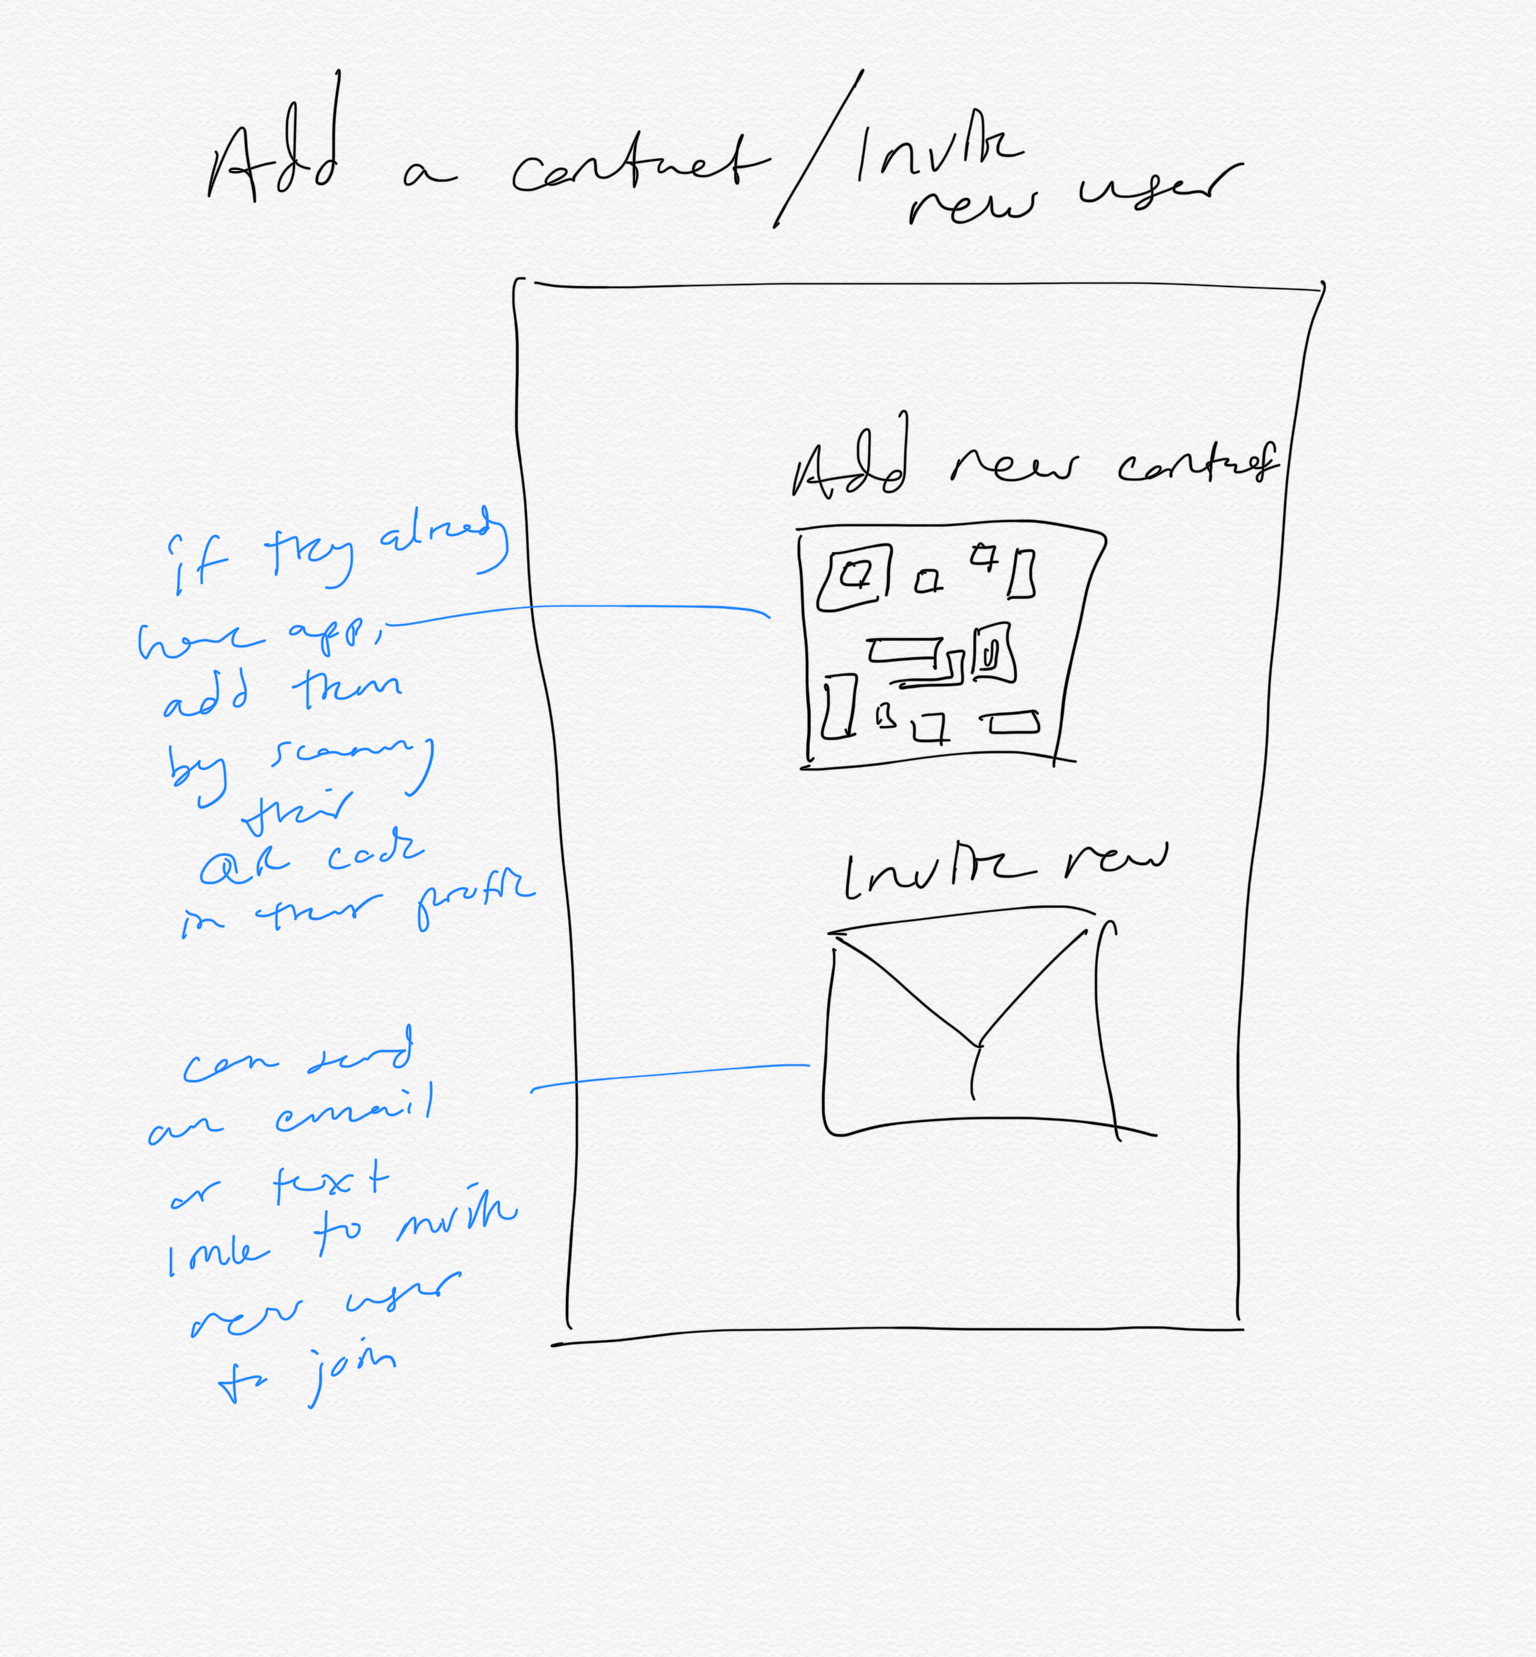 Add a contact / Invite
new user
Add new contact
if they already
have app,
add them
by scanning
their
QR code
in their profile
Invite new
can send
an email
or text
link to invite
new user
to join